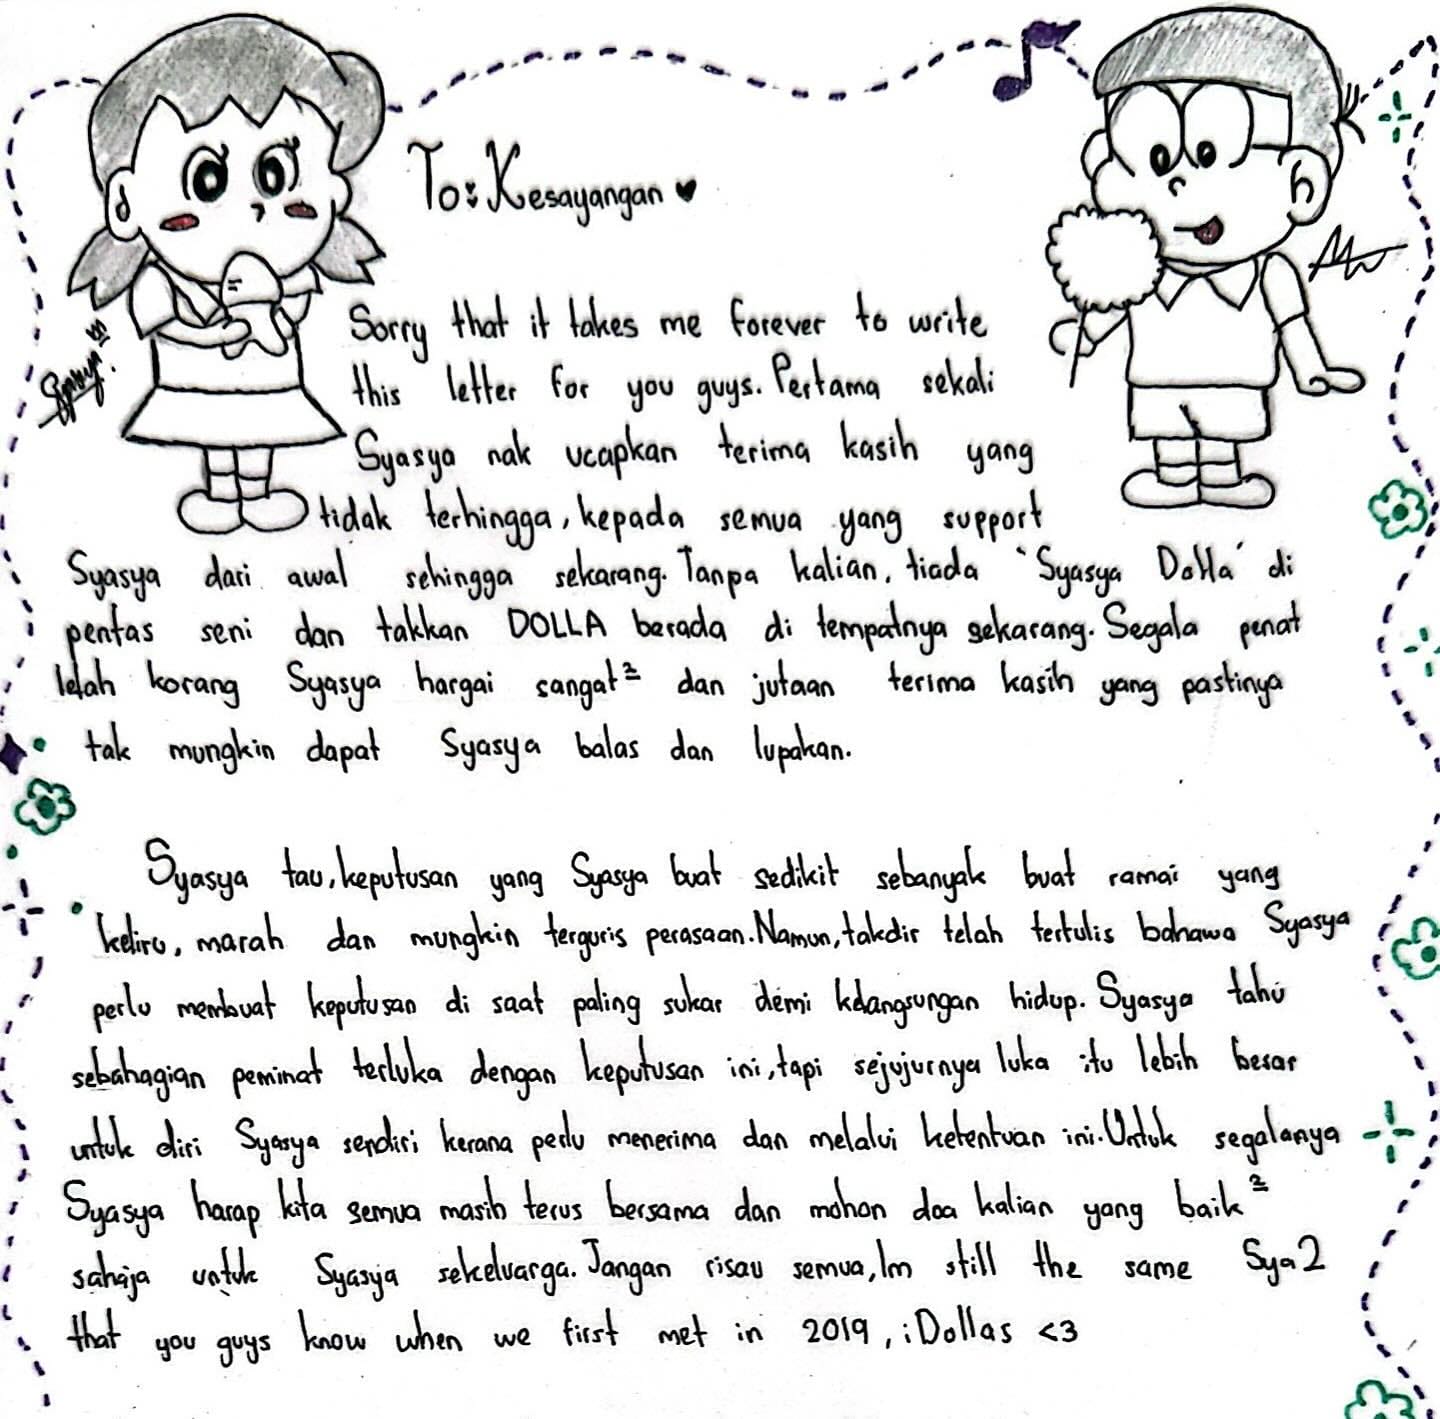 To: Kesayangan ♥
Sorry that it takes me forever to write
this letter for you guys. Pertama sekali
Syasya nak ucapkan terima kasih yang
tidak terhingga, kepada semua yang support
Syasya dari awal sehingga sekarang. Tanpa kalian, tiada 'Syasya Dolla' di
pentas seni dan takkan DOLLA berada di tempatnya sekarang. Segala penat
lelah korang Syasya hargai sangat² dan jutaan terima kasih yang pastinya
tak mungkin dapat Syasya balas dan lupakan.
Syasya tau, keputusan yang Syasya buat sedikit sebanyak buat ramai yang
keliru, marah dan mungkin terguris perasaan. Namun, takdir telah tertulis bahawa Syasya
perlu membuat keputusan di saat paling sukar demi kelangsungan hidup. Syasya tahu
sebahagian peminat terluka dengan keputusan ini, tapi sejujurnya luka itu lebih besar
untuk diri Syasya sendiri kerana perlu menerima dan melalui ketentuan ini. Untuk segalanya
Syasya harap kita semua masih terus bersama dan mohon doa kalian yang baik²
sahaja untuk Syasya sekeluarga. Jangan risau semua, Im still the same Sya2
that you guys know when we first met in 2019, iDollas <3